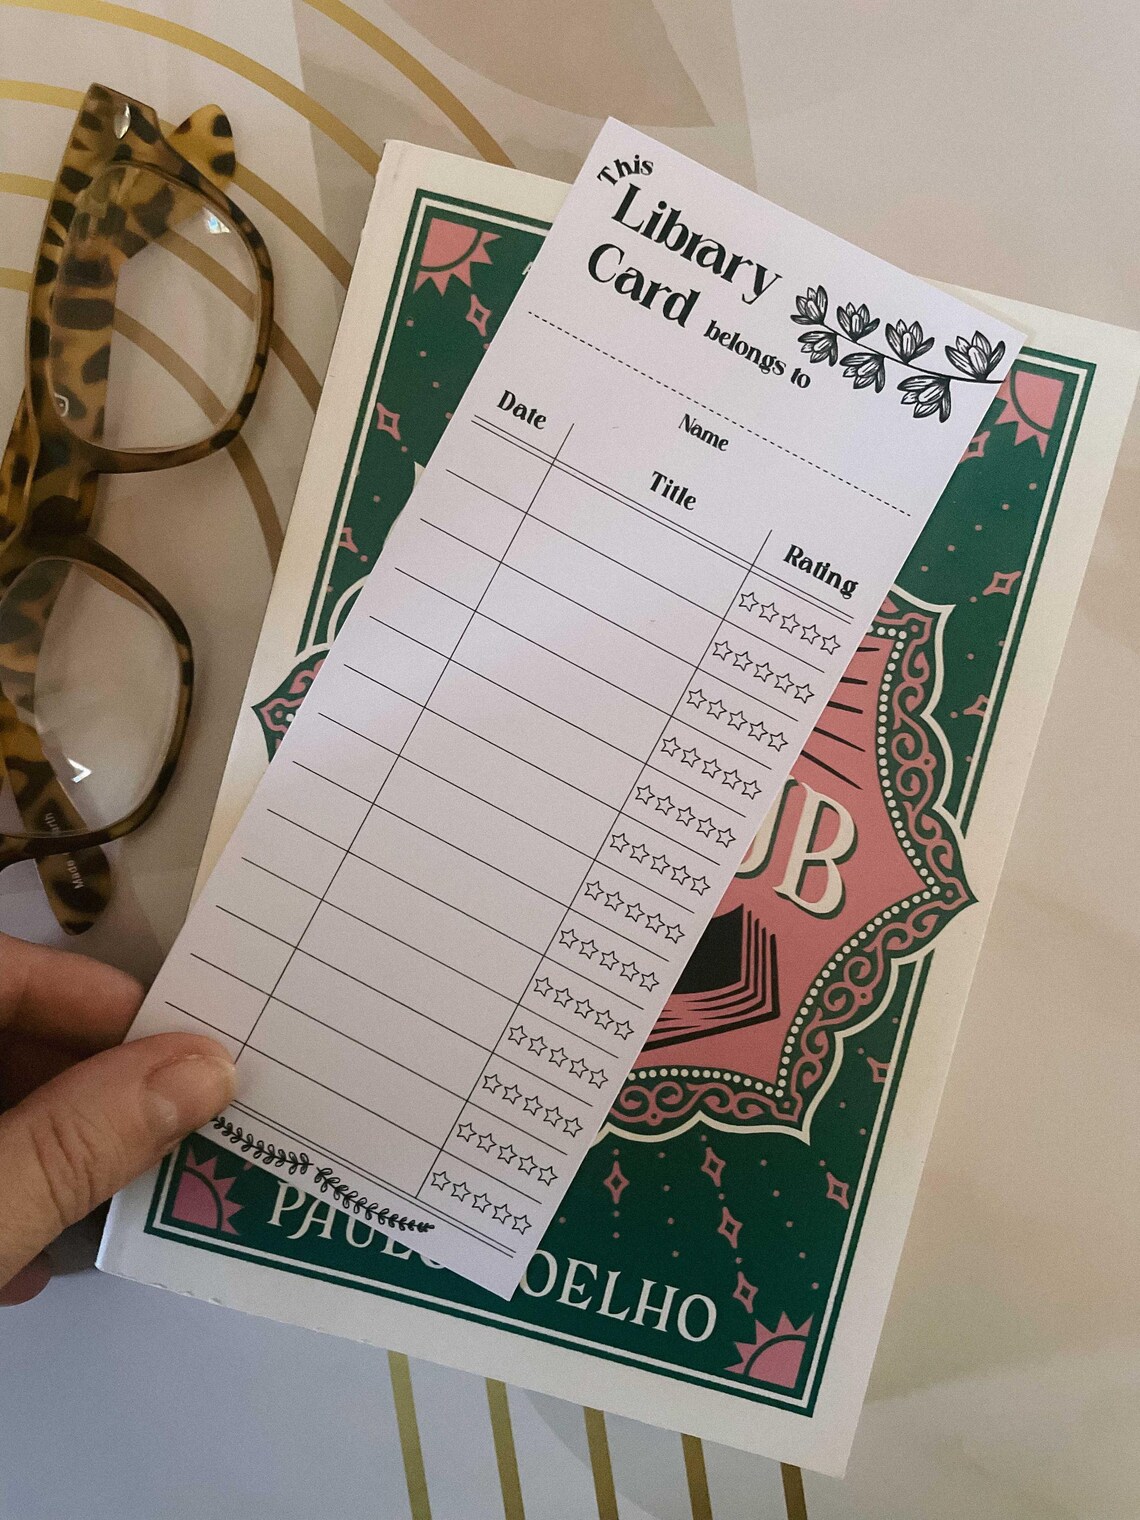 This
Library
Card belongs to
Name
Date Title Rating
UB
PAULO COELHO
Made